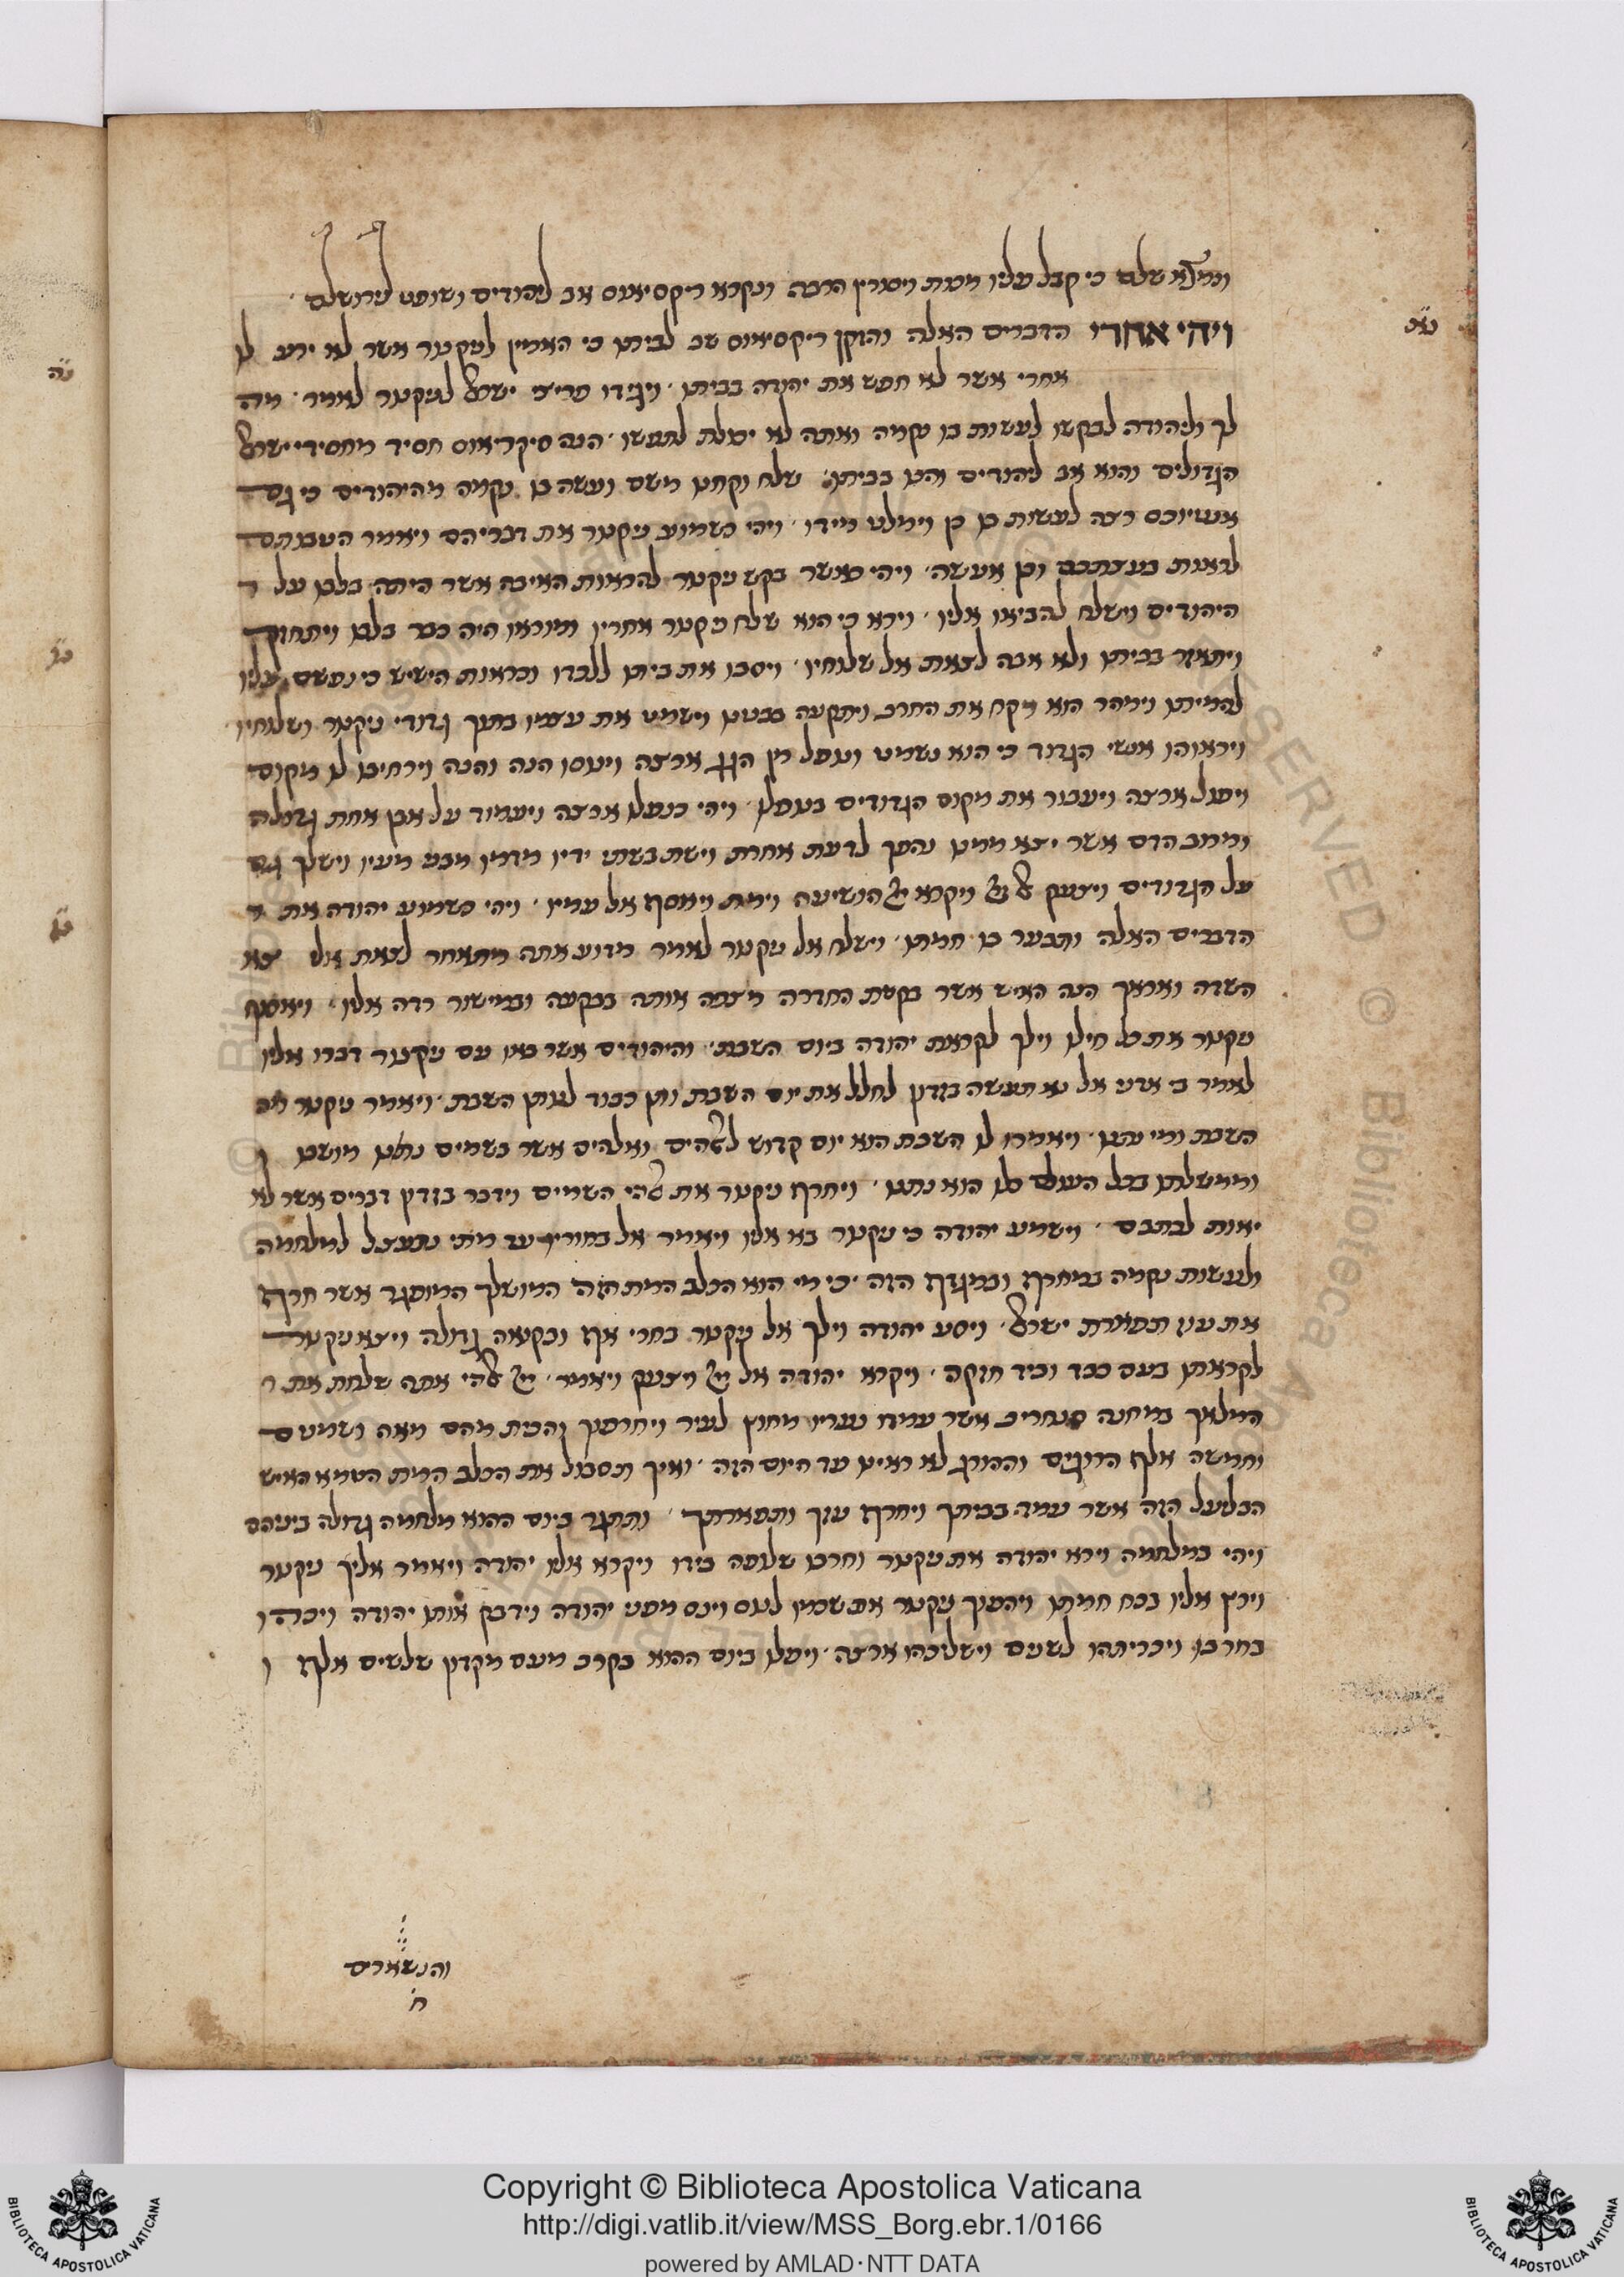 ונמלא שלם כי קבל עליו מכות ויסורין הרבה ונקרא ריקסיאוס אב ליהודים ושופט לירושלם
ויהי אחרי הדברים האלה והזקן ריקסיאוס שב לביתו כי האמין לניקנור אשר לא ירע לו
אחרי אשר לא חפש את יהודה בביתו ויגידו פריצי ישראל לניקנור לאמר מה
לך וליהודה לבקשו לעשות בו נקמה ואתה לא יכולת לתפשו הנה סיקריאוס חסיד מחסידי ישראל
הגדולים והוא אב ליהודים והנו בביתו שלח וקחנו משם ועשה בו נקמה מהיהודים כי גם
אנטיוכס רצה לעשות כן וימלט מידו ויהי כשמוע ניקנור את דבריהם ויאמר הטבותם
לראות בעצתכם וכן אעשה ויהי כאשר בקש ניקנור להראות האיבה אשר היתה בלבו על
היהודים וישלח להביאו אליו וירא כי הוא שלח ניקנור אחריו ומוראו היה כבד בלבו ויתחזק
ויתאזר בביתו ולא אבה לצאת אל שלוחיו ויסבו את ביתו ללכדו וכראות הישיש כי נפשם עליו
להמיתו וימהר הוא ויקח את החרב ויתקעה בבטנו וישמט את עצמו בתוך גדודי ניקנור ושלוחיו
ויראוהו אנשי הגדוד כי הוא נשמט ונופל מן הגג ארצה וינוסו הנה והנה וירחיבו לו מקום
ויפול ארצה ויעבור את מקום הגדודים בנפלו ויהי כנפלו ארצה ויעמוד על אבן אחת גדולה
ומרוב הדם אשר יצא ממנו נהפך לדעת אחרת וישת בשתי ידיו מדמו מבני מעיו וישלך גם
על הגדודים ויצעק ויקרא הושיעה וימת ויאסף אל עמיו ויהי כשמוע יהודה את
הדברים האלה ותבער בו חמתו וישלח אל ניקנור לאמר מדוע אתה מתאחר לצאת אלי צא
השדה ואראך הנה האיש אשר בקשת החדרה מצפה אותה בבקעה ובמישור רדה אליו ויאסף
ניקנור את כל חילו וילך לקראת יהודה ביום השבת והיהודים אשר באו עם ניקנור דברו אליו
לאמר בי אדני אל נא תעשה בזדון לחלל את יום השבת ותן כבוד לנותן השבת ויאמר ניקנור מה
השבת ומי נותנו ויאמרו לו השבת הוא יום קדוש לאלהים ואלהים אשר בשמים נתנו מושבו
וממשלתו בכל העולם כלו הוא נתנו ויחרף ניקנור את אלהי השמים וידבר בזדון דברים אשר לא
יאות לכתבם וישמע יהודה כי ניקנור בא אליו ויאמר אל בחוריו עד מתי נתעצל למלחמה
ולעשות נקמה במחרף ובמגדף הזה כי מי הוא הכלב המת הזה המושלך המופגר אשר חרף
את עוז תפארת ישראל ויסע יהודה וילך אל ניקנור בחרי אף ובקנאה גדולה ויצא ניקנור
לקראתו בעם כבד וביד חזקה ויקרא יהודה אל ויצעק ויאמר אלהי אתה שלחת את
המלאך במחנה סנחריב אשר עמדו נעריו מחוץ לעיר ויחרפוך והכית מהם מאה ושמונים
וחמשה אלף הרוגים וההורג לא ראינו עד היום הזה ואיך תסבול את הכלב המת הטמא האיש
הבליעל הזה אשר עמד בביתך ויחרף עוזך ותפארתך ותתגר ביום ההוא מלחמה גדולה ביניהם
ויהי במלחמה וירא יהודה את ניקנור וחרבו שלופה בידו ויקרא אליו יהודה ויאמר אליך ניקנור
וירץ אליו בכח חמתו ויהפוך ניקנור את שכמו לנוס וינס מפני יהודה וידבק אותו יהודה ויכהו
בחרבו ויכריתהו לשנים וישליכהו ארצה ויפלו ביום ההוא בקרב מעם מקדון שלשים אלף
והנשארים
Copyright © Biblioteca Apostolica Vaticana
http://digi.vatlib.it/view/MSS_Borg.ebr.1/0166
powered by AMLAD · NTT DATA